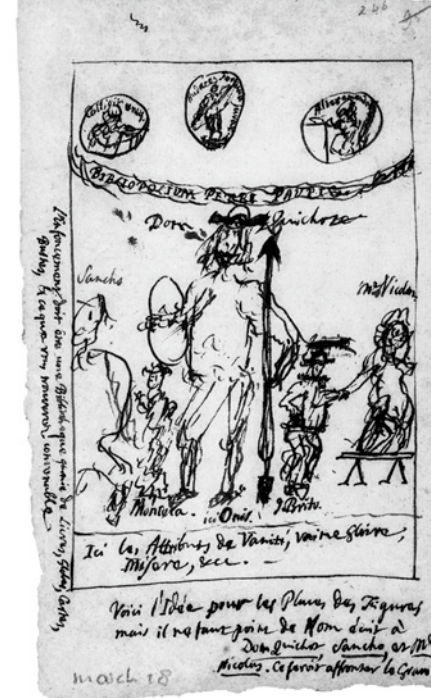 246
BIBLIOPOLIUM PERBE PAUPER
Dom Quichoze
Sancho
Mr Nicolas
l'Enfoncement doit être une Bibliotheque garnie de Livres, Globes, Cartes,
Bustes, & ce que vous trouverez convenable
Montota. ici Onis. JBrito.
Ici les Attributs de Vanité, vaine gloire,
Misere, &cc. —
Voici l'Idée pour les Places des Figures
mais il ne faut point de Nom écrit à
Dom Quichot Sancho, et Mr
Nicolas. Ce seroit affronter le Grave
march 18